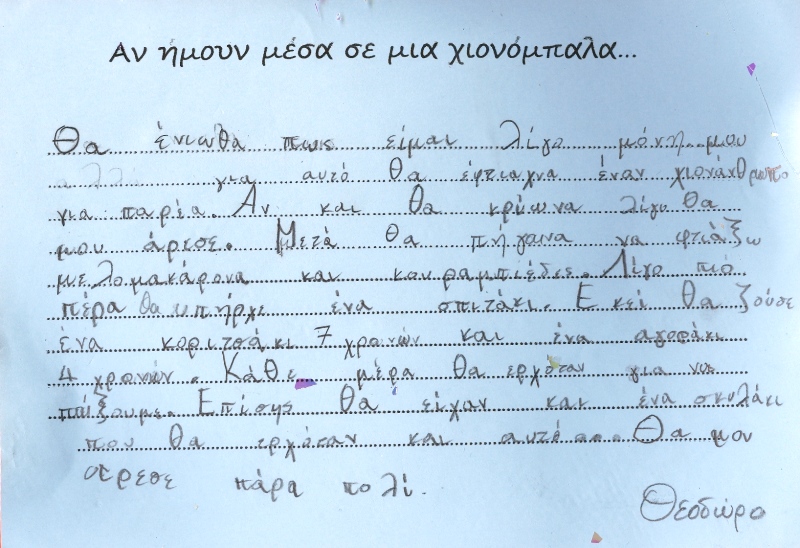 Αν ήμουν μέσα σε μια χιονόμπαλα...
Θα ένιωθα πως είμαι λίγο μόνη μου
αλλά για αυτό θα έφτιαχνα έναν χιονάνθρωπο
για παρέα. Αν και θα κρύωνα λίγο θα
μου άρεσε. Μετά θα πήγαινα να φτιάξω
μελομακάρονα και κουραμπιέδες. Λίγο πιο
πέρα θα υπήρχε ένα σπιτάκι. Εκεί θα ζούσε
ένα κοριτσάκι 7 χρονών και ένα αγοράκι
4 χρονών. Κάθε μέρα θα ερχόταν για να
παίξουμε. Επίσης θα είχαν και ένα σκυλάκι
που θα ερχόταν και αυτό... Θα μου
αρεσε πάρα πολί.
Θεοδώρα